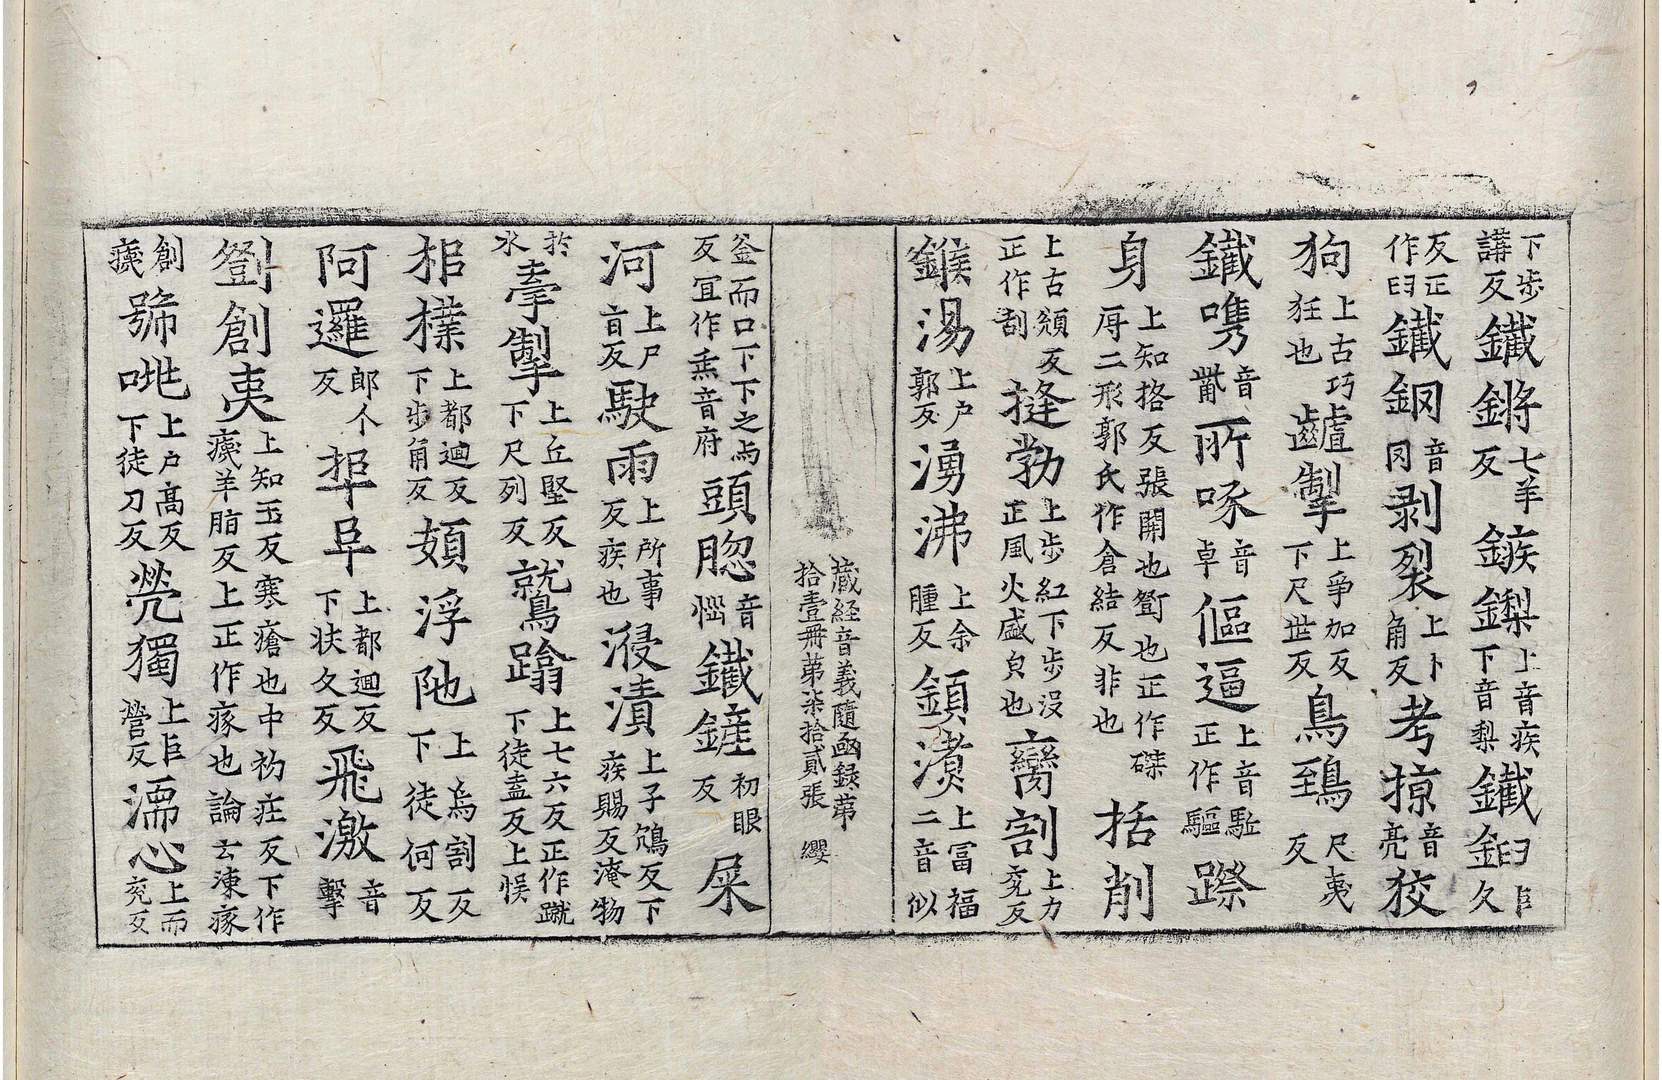 下步講反鐵鏘七羊反鏃鑗上音疾下音梨鐵𨥥臼臼久
反正作臼鐵釰音冈剥裂上卜角反考掠音亮狡
狗上古巧狂也齇掣上爭加反下尺世反鳥鵄尺夷反
鐵㗾音觜所啄音卓傴逼上音駈正作驅蹨
身上知挌反張開也㔁也正作磔厚二形郭氏作倉結反非也括削
上古頞反正作刮㨲勃上步紅下步没正風火盛皃也臠割上力兖反
鍭湯上户郭反湧沸上余腫反鎮瀆上冨福二音似
藏経音義隨函録苐拾壹冊苐柒拾貳張 纓
釜而口下下之与反冝作𤋱音府頭䐉音惱鐵鏟初眼反屎
河上尸旨反駛雨上所事反疾也浸漬上子鴆反下疾賜反淹物
扵水牽掣上丘堅反下尺列反鷲蹹上七六反正作蹴下徒盍反上悮
桘樸上都迴反下步角反頞浮陁上烏割反下徒何反
阿邏郎个反㨃阜上都迴反下扶久反飛激音擊
㔁創夷上知玉反寒瘡也中礿疰反下作痍羊脂反上正作瘃也論云凍瘃
創痍號咷上户高反下徒刀反㷀獨上巨營反濡心上而兖反